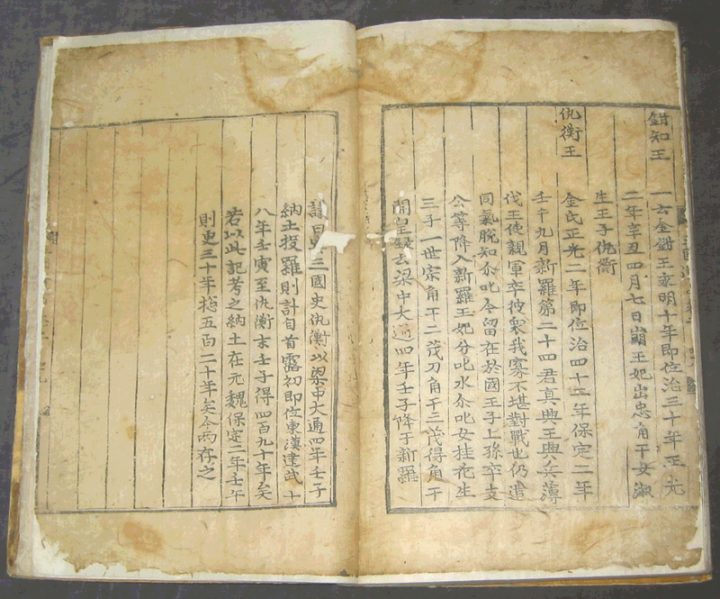 鉗知王 一云金鉗王永明十年即位治三十年正光
二年辛丑四月七日崩王妃出忠角干女淑
生王子仇衡
仇衡王
金氏正光二年即位治四十二年保定二年
壬午九月新羅第二十四君真興王興兵薄
伐王使親軍卒彼衆我寡不堪對戰也仍遣
同氣脫知尒叱今留在於國王子上孫卒支
公等降入新羅王妃分叱水尒叱女桂花生
三子一世宗角干二茂刀角干三茂得角干
開皇録云梁中大通四年壬子降于新羅
議曰三國史仇衡以梁中大通四年壬子
納土投羅則計自首露初即位東漢建武十
八年壬寅至仇衡末壬子得四百九十年矣
若以此記考之納土在元魏保定二年壬午
則更三十年揔五百二十年矣今兩存之